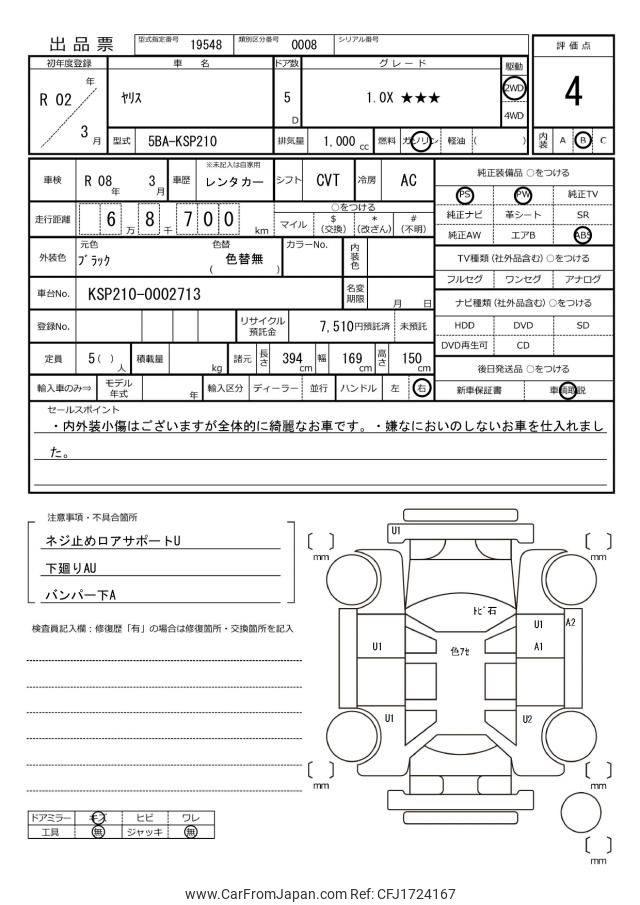 出品票
型式指定番号 19548 類別区分番号 0008 シリアル番号
評価点
初年度登録 車名 ドア数 グレード 駆動
R 02 年 3 月
ヤリス
5 D
1.0X ★★★
2WD
4WD
4
型式 5BA-KSP210 排気量 1,000 cc 燃料 ガソリン 軽油 ( )
内装 A B C
車検 R 08 年 3 月 車歴 ※未記入は自家用 レンタカー シフト CVT 冷房 AC
純正装備品 ○をつける
PS PW 純正TV
走行距離 6 万 8 千 7 0 0 km
○をつける
マイル $ (交換) * (改ざん) # (不明)
純正ナビ 革シート SR
純正AW エアB ABS
外装色 元色 ブラック 色替 ( 色替無 ) カラーNo. 内装色
TV種類 (社外品含む) ○をつける
フルセグ ワンセグ アナログ
車台No. KSP210-0002713 名変期限 月 日
ナビ種類 (社外品含む) ○をつける
登録No. リサイクル預託金 7,510円預託済 未預託
HDD DVD SD
DVD再生可 CD
定員 5 ( ) 人 積載量 kg 諸元 長さ 394 cm 幅 169 cm 高さ 150 cm
後日発送品 ○をつける
輸入車のみ⇒ モデル年式 年 輸入区分 ディーラー 並行 ハンドル 左 右
新車保証書 車輌取説
セールスポイント
・内外装小傷はございますが全体的に綺麗なお車です。・嫌なにおいのしないお車を仕入れまし
た。
注意事項・不具合箇所
ネジ止めロアサポートU
下廻りAU
バンパー下A
検査員記入欄:修復歴「有」の場合は修復箇所・交換箇所を記入
U1
mm
mm
トビ石
U1
A2
U1
色アセ
A1
U1
U2
mm
mm
mm
ドアミラー キズ ヒビ ワレ
工具 無 ジャッキ 無
www.CarFromJapan.com Ref: CFJ1724167